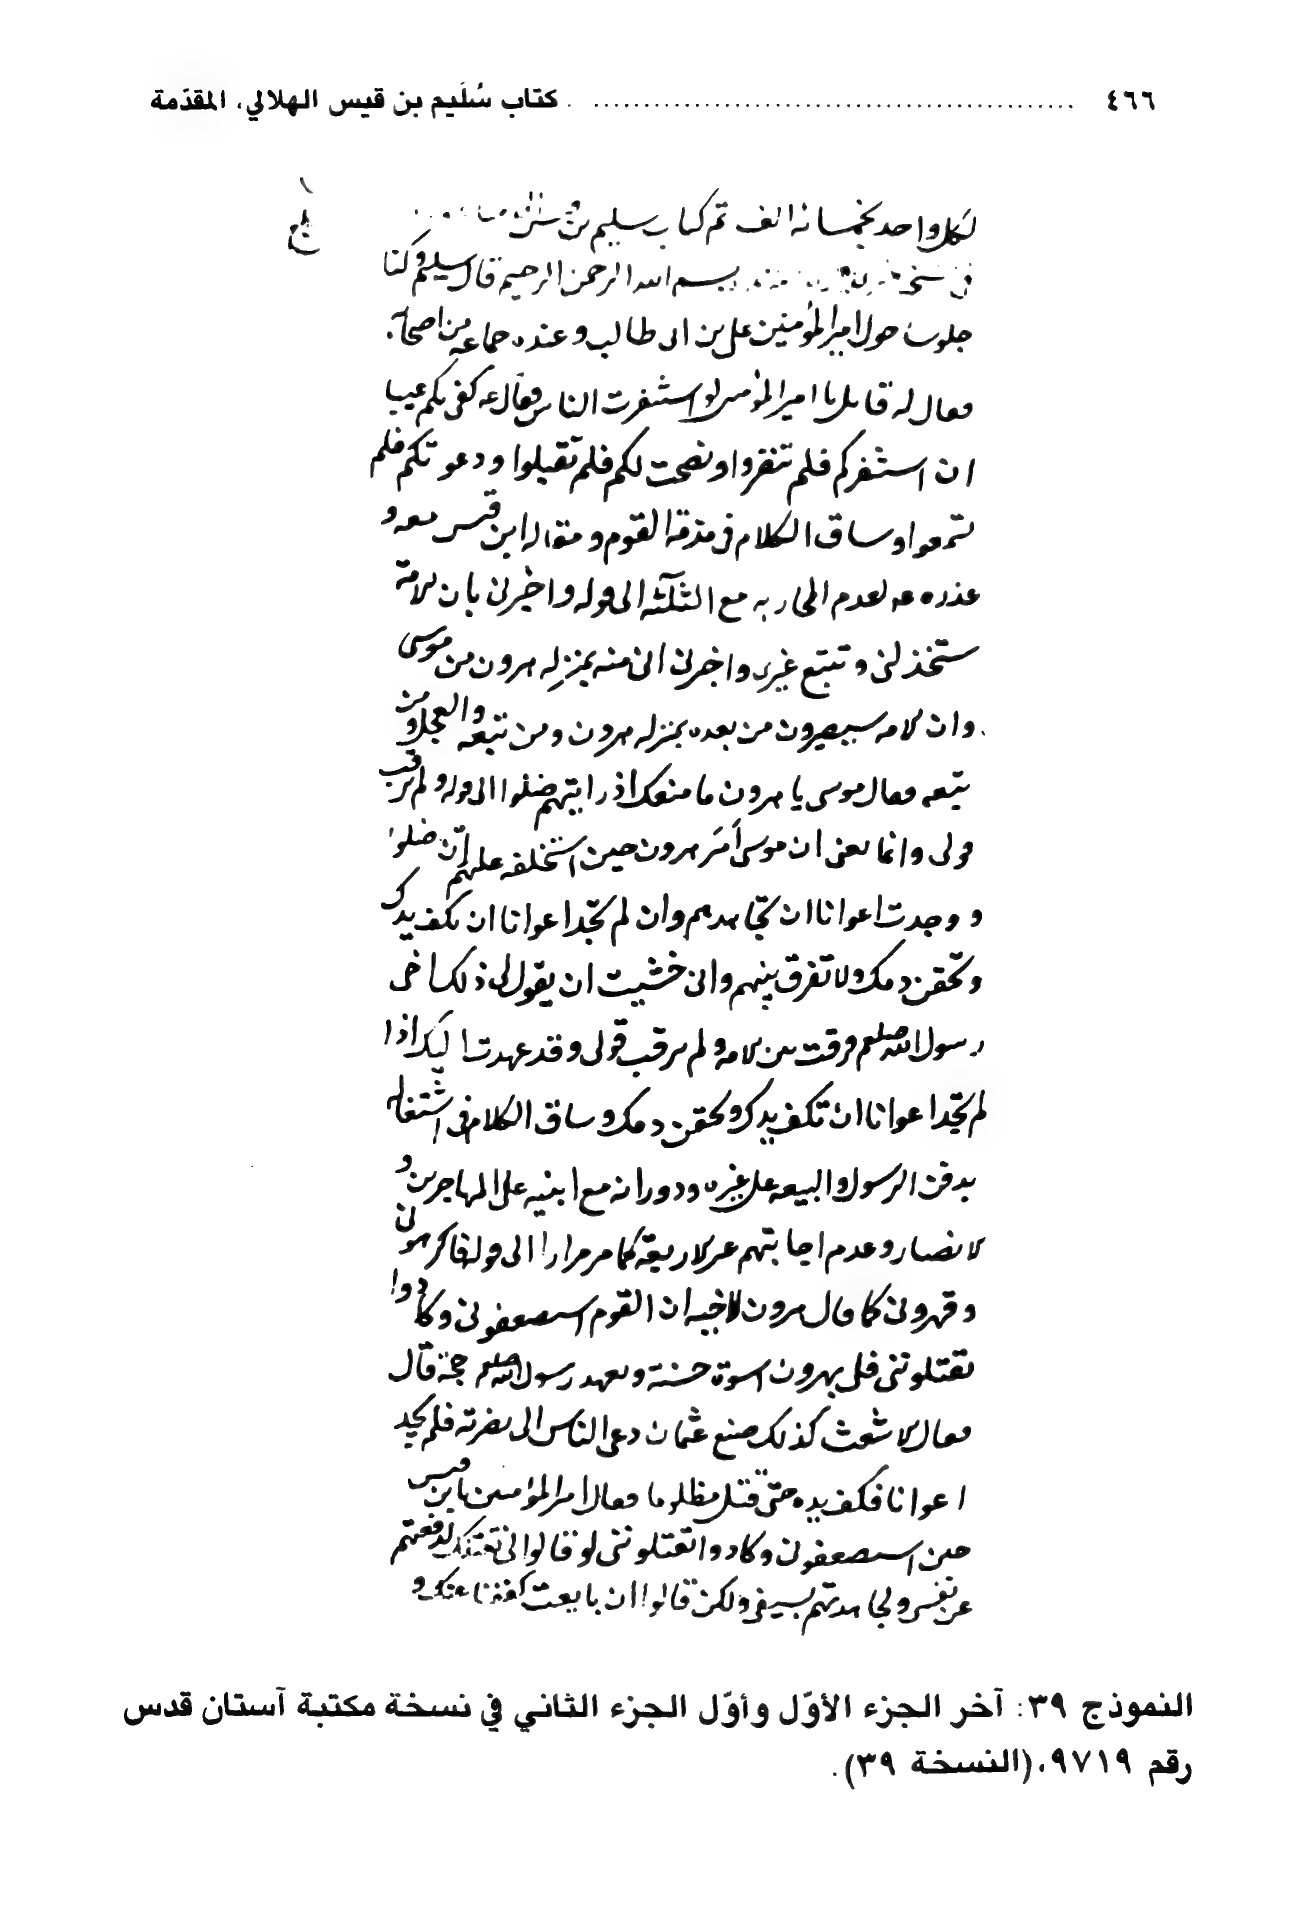 ٤٦٦ ........ كتاب سُلَيم بن قيس الهلالي، المقدّمة
لكل واحد بخمسمائة الف تم كتاب سليم بن
بسم الله الرحمن الرحيم قال سليم وكنا
جلوسا حول امير المؤمنين على بن ابى طالب و عنده جماعه من اصحابه
فعال له قايل يا امير المؤمنين لو استنفرت الناس فقال ع كفى بكم عيبا
ان استنفركم فلم تنفروا ونصحت لكم فلم تقبلوا ودعوتكم فلم
تسمعوا وساق الكلام فى مذمة القوم و مقاله ابن قيس معه و
عذره عه لعدم المحاربه مع الثلثه الى قوله واخبرنى بان الامة
ستخذلنى و تتبع غيرى واخبرنى انى منه بمنزله هرون من موسى
وان الامه سيصيرون من بعده بمنزله هرون ومن تبعه والعجل ومن
تبعه فقال موسى يا هرون ما منعك اذ رايتهم ضلوا الى قوله ولم ترقب
قولى وانما يعنى ان موسى أمَر هرون حين استخلفه عليهم إن ضلوا
و وجدت اعوانا ان تجاهدهم وان لم تجد اعوانا ان تكف يدك
وتحقن دمك ولا تفرق بينهم وانى خشيت ان يقول لى ذلك اخى
رسول الله صلعم فرقت بين الامه ولم ترقب قولى وقد عهدت اليك اذا
لم تجد اعوانا ان تكف يدك وتحقن دمك وساق الكلام فى اشتغاله
بدفن الرسول والبيعه على غيره ودورانه مع ابنيه على المهاجرين و
الانصار وعدم اجابتهم غير الاربعة كما مر مرارا الى قوله فاكرهونى
وقهرونى كما قال هرون لاخيه ان القوم استضعفونى وكادوا
يقتلوننى فلى بهرون اسوة حسنة وبعهد رسول الله صلعم حجة قال
فقال الاشعث كذلك صنع عثمان دعى الناس الى نصرته فلم يجد
اعوانا فكف يده حتى قتل مظلوما فقال امير المؤمنين يا بن قيس
حين استضعفونى وكادوا يقتلوننى لو قالوا لى نقتلك لدفعتهم
عن نفسى ولجاهدتهم بسيفى ولكن قالوا ان بايعت كففنا عنك و
النموذج ٣٩: آخر الجزء الأوّل وأوّل الجزء الثاني في نسخة مكتبة آستان قدس
رقم ٩٧١٩، (النسخة ٣٩).